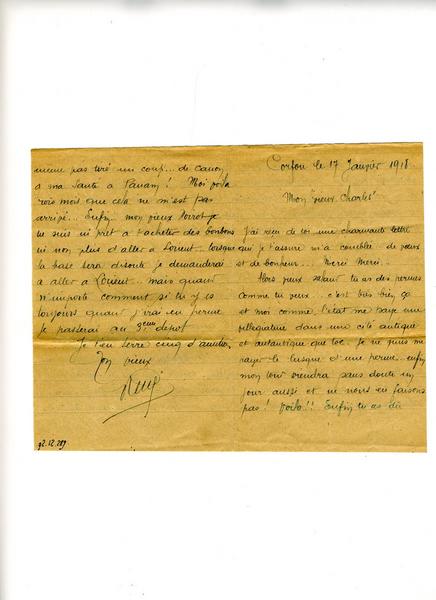 Corfou le 17 Janvier 1918
Mon "vieux Charles"
J'ai reçu de toi une charmante lettre
qui je t'assure m'a comblé de vœux
et de bonheur... Merci Merci..
Alors vieux tu as des permes
comme tu veux... c'est très bien ça
et moi comme l'état me paye une
villégiature dans une cité antique
et autantique que toc. Je ne puis me
payer le lusque d'une perme.. enfin
mon tour viendra sans doute un
jour aussi et ne nous en faisons
pas! Voilà!! Enfin tu as dû
même pas tiré un coup... de canon
a ma santé a Panam! Moi voilà
trois mois que cela ne m'est pas
arrivé... Enfin mon vieux
je suis ni prêt a t'acheter des bonbons
ni non plus d'aller a Lorient.. lorsque
la base sera disoute je demanderai
a aller a Lorient.. mais quand
n'importe comment si tu y es
toujours quand j'irai en perme
je passerai au 3ème dépôt
Je t'en serre cinq d'amitié
Ton vieux
92.12.289